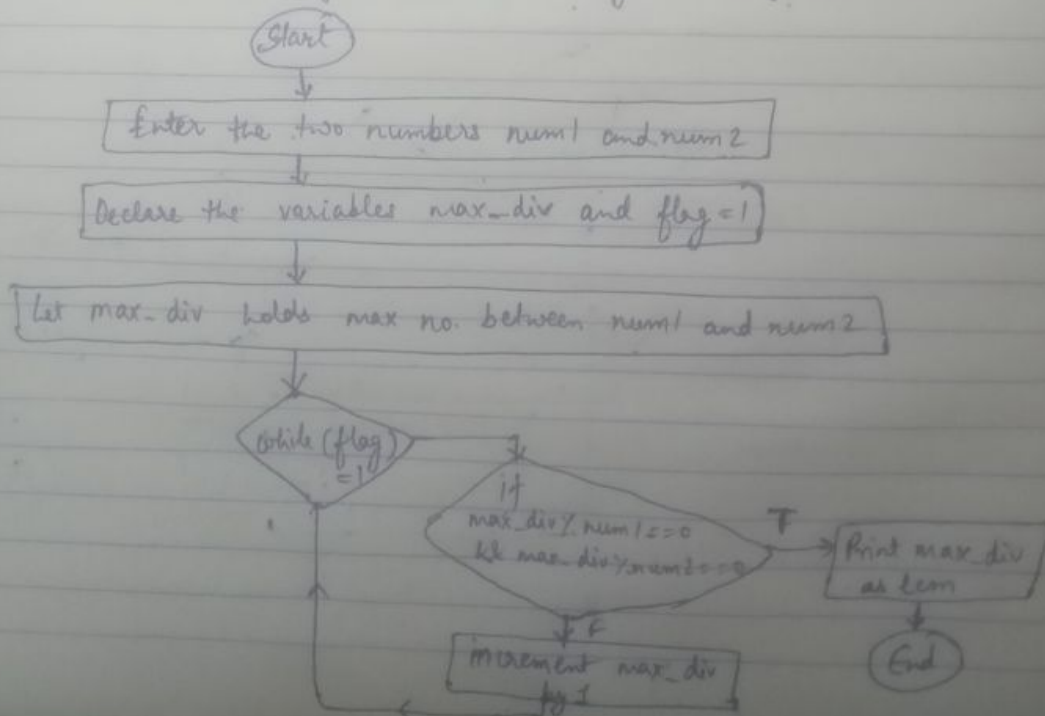 Start
Enter the two numbers num1 and num2
Declare the variables max_div and flag = 1
Let max_div holds max no. between num1 and num2
while (flag)
= 1
if
max_div % num1 == 0
&& max_div % num2 == 0
T
Print max_div
as lcm
F
End
increment max_div
by 1